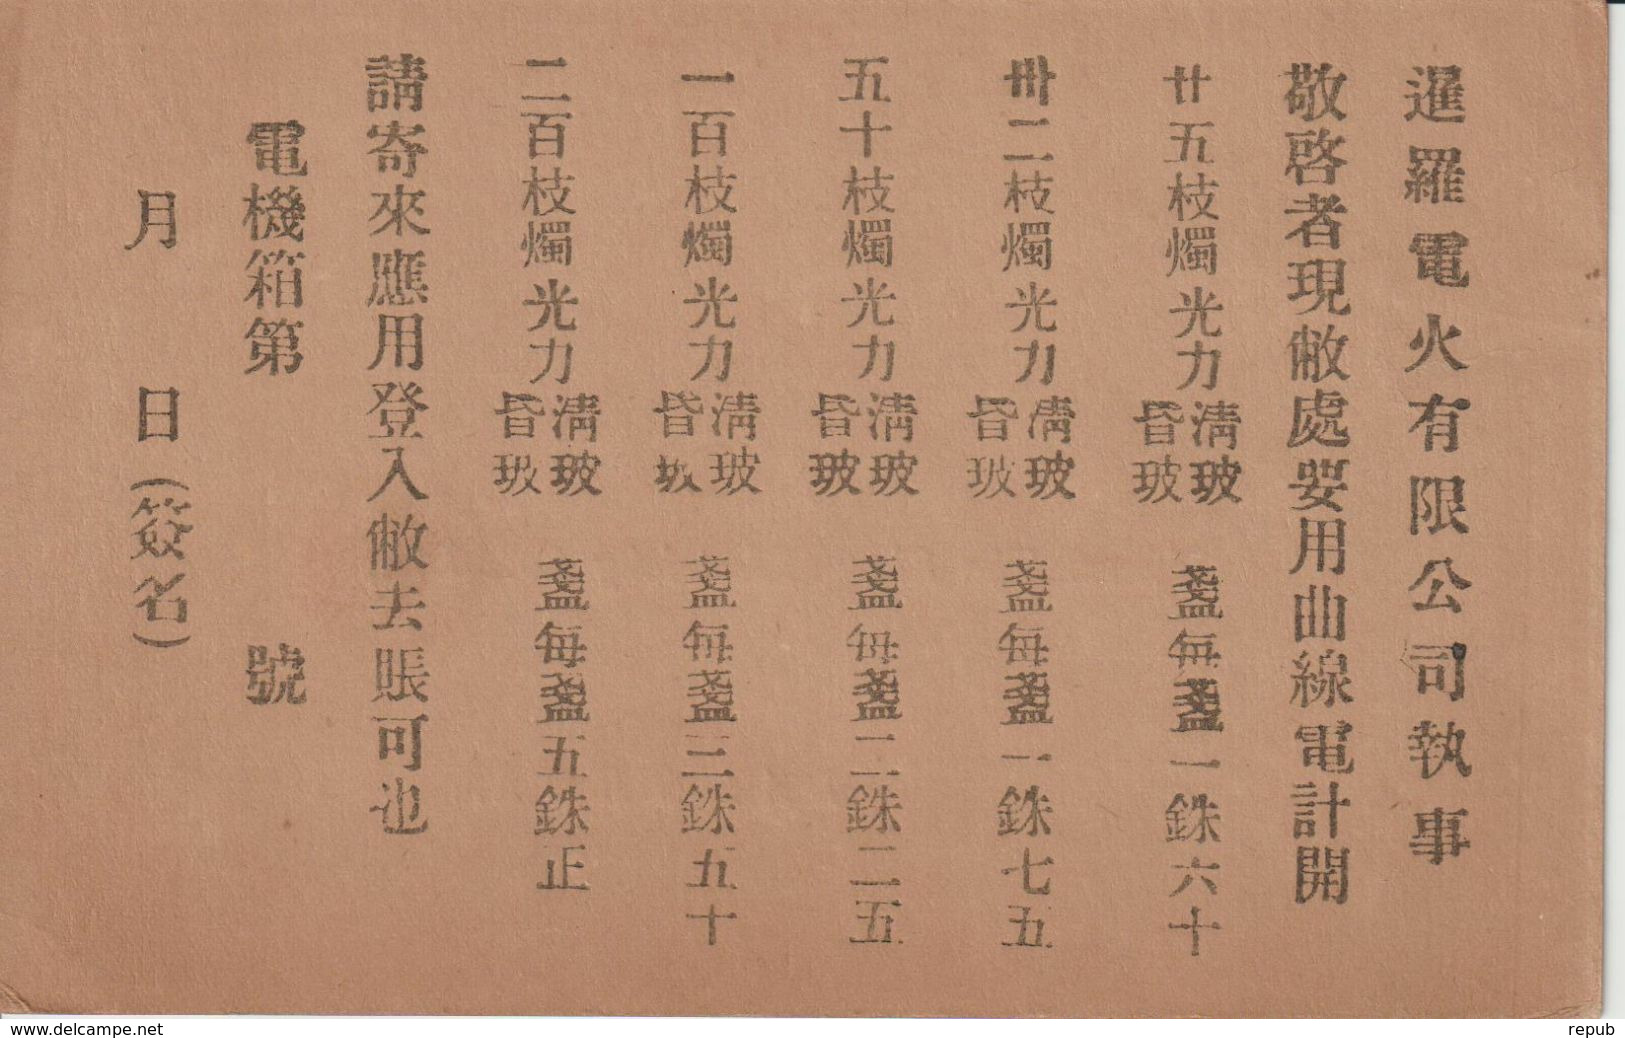 暹羅電火有限公司執事
敬啓者現敝處要用曲線電計開
廿五枝燭光力清玻昏玻 盞每盞一銖六十
卅二枝燭光力清玻昏玻 盞每盞一銖七五
五十枝燭光力清玻昏玻 盞每盞二銖二五
一百枝燭光力清玻昏玻 盞每盞三銖五十
二百枝燭光力清玻昏玻 盞每盞五銖正
請寄來應用登入敝去賬可也
電機箱第 號
月 日(簽名)
www.delcampe.net
repub